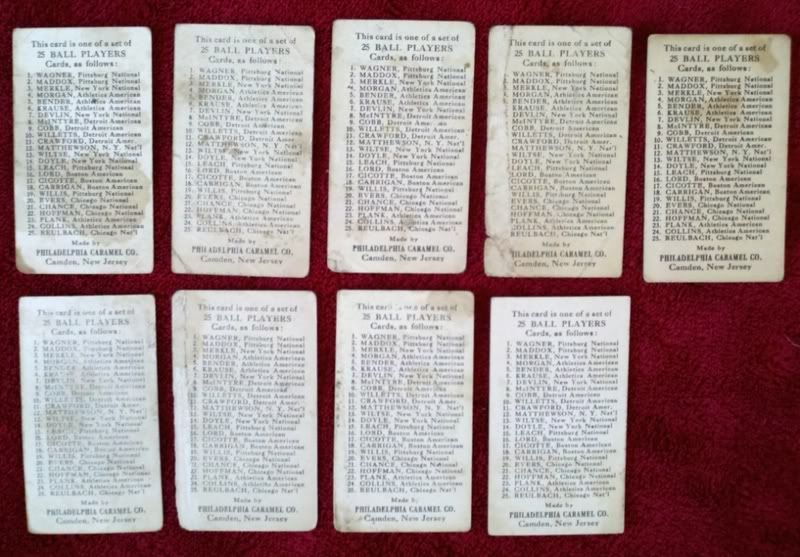 This card is one of a set of
25 BALL PLAYERS
Cards, as follows:
1. WAGNER, Pittsburg National
2. MADDOX, Pittsburg National
3. MERKLE, New York National
4. MORGAN, Athletics American
5. BENDER, Athletics American
6. KRAUSE, Athletics American
7. DEVLIN, New York National
8. McINTYRE, Detroit American
9. COBB, Detroit American
10. WILLETTS, Detroit American
11. CRAWFORD, Detroit Amer.
12. MATTHEWSON, N. Y. Nat'l
13. WILTSE, New York National
14. DOYLE, New York National
15. LEACH, Pittsburg National
16. LORD, Boston American
17. CICOTTE, Boston American
18. CARRIGAN, Boston American
19. WILLIS, Pittsburg National
20. EVERS, Chicago National
21. CHANCE, Chicago National
22. HOFFMAN, Chicago National
23. PLANK, Athletics American
24. COLLINS, Athletics American
25. REULBACH, Chicago Nat'l
Made by
PHILADELPHIA CARAMEL CO.
Camden, New Jersey
This card is one of a set of
25 BALL PLAYERS
Cards, as follows:
1. WAGNER, Pittsburg National
2. MADDOX, Pittsburg National
3. MERKLE, New York National
4. MORGAN, Athletics American
5. BENDER, Athletics American
6. KRAUSE, Athletics American
7. DEVLIN, New York National
8. McINTYRE, Detroit American
9. COBB, Detroit American
10. WILLETTS, Detroit American
CRAWFORD, Detroit Amer.
12. MATTHEWSON, N. Y. Nat'l
13. WILTSE, New York National
14. DOYLE, New York National
15. LEACH, Pittsburg National
16. LORD, Boston American
17. CICOTTE, Boston American
18. CARRIGAN, Boston American
19. WILLIS, Pittsburg National
20. EVERS, Chicago National
21. CHANCE, Chicago National
22. HOFFMAN, Chicago National
23. PLANK, Athletics American
24. Athletics American
25. REULBACH, Chicago Nat'l
Made by
PHILADELPHIA CARAMEL CO.
Camden, New Jersey
This card is one of a set of
25 BALL PLAYERS
Cards, as follows:
1. WAGNER, Pittsburg National
2. MADDOX, Pittsburg National
3. MERKLE, New York National
MORGAN, Athletics American
5. BENDER, Athletics American
6. KRAUSE, Athletics American
7. DEVLIN, New York National
8. McINTYRE, Detroit American
9. COBB, Detroit
10. WILLETTS, Detroit American
11. CRAWFORD, Detroit Amer.
12. MATTHEWSON, N. Y. Nat'l
13. WILTSE, New York National
14. DOYLE, New York National
15. LEACH, Pittsburg National
16. LORD, Boston American
17. CICOTTE, Boston American
18. CARRIGAN, Boston American
19. WILLIS, Pittsburg National
20. EVERS, Chicago National
21. CHANCE, Chicago National
22. HOFFMAN, Chicago National
23. PLANK, Athletics American
24. COLLINS, Athletics American
25. REULBACH, Chicago Nat'l
Made by
PHILADELPHIA CARAMEL CO.
Camden, New Jersey
This card is one of a set of
25 BALL PLAYERS
Cards, as follows:
WAGNER, Pittsburg National
MADDOX, Pittsburg National
3. MERKLE, New York National
4. MORGAN, Athletics American
5. BENDER, Athletics American
6. KRAUSE, Athletics American
7. DEVLIN, New York National
8. McINTYRE, Detroit American
9. COBB, Detroit American
10. WILLETTS, Detroit American
11. CRAWFORD, Detroit Amer.
12. MATTHEWSON, N. Y. Nat'l
13. WILTSE, New York National
14. DOYLE, New York National
15. LEACH, Pittsburg National
16. LORD, Boston American
17. CICOTTE, Boston American
18. CARRIGAN, Boston American
19. WILLIS, Pittsburg National
20. EVERS, Chicago National
21. CHANCE, Chicago National
22. HOFFMAN, Chicago National
23. PLANK, Athletics American
COLLINS, Athletics American
REULBACH, Chicago Nat'l
Made by
PHILADELPHIA CARAMEL CO.
Camden, New Jersey
This card is one of a set of
25 BALL PLAYERS
Cards, as follows:
1. WAGNER, Pittsburg National
2. MADDOX, Pittsburg National
3. MERKLE, New York National
4. MORGAN, Athletics American
5. BENDER, Athletics American
6. KRAUSE, Athletics American
7. DEVLIN, New York National
8. McINTYRE, Detroit American
9. COBB, Detroit American
10. WILLETTS, Detroit American
11. CRAWFORD, Detroit Amer.
12. MATTHEWSON, N. Y. Nat'l
13. WILTSE, New York National
14. DOYLE, New York National
15. LEACH, Pittsburg National
16. LORD, Boston American
17. CICOTTE, Boston American
18. CARRIGAN, Boston American
19. WILLIS, Pittsburg National
20. EVERS, Chicago National
21. CHANCE, Chicago National
22. HOFFMAN, Chicago National
23. PLANK, Athletics American
24. COLLINS, Athletics American
25. REULBACH, Chicago Nat'l
Made by
PHILADELPHIA CARAMEL CO.
Camden, New Jersey
This card is one of a set of
25 BALL PLAYERS
Cards, as follows:
1. WAGNER, Pittsburg National
2. MADDOX, Pittsburg National
3. MERKLE, New York National
4. MORGAN, Athletics American
5. BENDER, Athletics American
6. Athletics American
7. DEVLIN, New York National
8. McINTYRE, Detroit American
9. COBB, Detroit American
10. WILLETTS, Detroit American
11. CRAWFORD, Detroit
12. MATTHEWSON, N. Y. Nat'l
13. WILTSE, New York National
14. DOYLE, New York National
15. LEACH, Pittsburg National
16. LORD, Boston American
17. CICOTTE, Boston American
18. CARRIGAN, Boston American
19. WILLIS, Pittsburg National
20. EVERS, Chicago National
21. CHANCE, Chicago National
22. HOFFMAN, Chicago National
23. PLANK, Athletics American
24. COLLINS, Athletics American
25. REULBACH, Chicago Nat'l
Made by
PHILADELPHIA CARAMEL CO.
Camden, New Jersey
This card is one of a set of
25 BALL PLAYERS
Cards, as follows:
1. WAGNER, Pittsburg National
2. MADDOX, Pittsburg National
3. MERKLE, New York National
4. MORGAN, Athletics American
5. BENDER, Athletics American
6. KRAUSE, Athletics American
7. DEVLIN, New York National
8. McINTYRE, Detroit American
9. COBB, Detroit American
10. WILLETTS, Detroit American
11. CRAWFORD, Detroit Amer.
12. MATTHEWSON, N. Y. Nat'l
13. WILTSE, New York National
14. DOYLE, New York National
15. LEACH, Pittsburg National
16. LORD, Boston American
17. CICOTTE, Boston American
18. CARRIGAN, Boston American
19. WILLIS, Pittsburg National
20. EVERS, Chicago National
21. CHANCE, Chicago National
22. HOFFMAN, Chicago National
23. PLANK, Athletics American
24. COLLINS, Athletics American
25. REULBACH, Chicago Nat'l
Made by
PHILADELPHIA CARAMEL CO.
Camden, New Jersey
This one of a set of
25 BALL PLAYERS
Cards, as follows:
1. WAGNER, Pittsburg National
2. MADDOX, Pittsburg National
3. MERKLE, New York National
4. MORGAN, Athletics American
5. BENDER, Athletics American
6. KRAUSE, Athletics American
7. DEVLIN, New York National
8. McINTYRE, Detroit American
9. COBB, Detroit American
10. WILLETTS, Detroit American
11. CRAWFORD, Detroit Amer.
12. MATTHEWSON, N. Y. Nat'l
13. WILTSE, New York National
14. DOYLE, New York National
15. LEACH, Pittsburg National
16. LORD, Boston American
17. CICOTTE, Boston American
18. CARRIGAN, Boston American
19. WILLIS, Pittsburg National
20. EVERS, Chicago National
21. CHANCE, Chicago National
22. HOFFMAN, Chicago National
23. PLANK, Athletics American
24. COLLINS, Athletics American
25. REULBACH, Chicago Nat'l
Made by
PHILADELPHIA CARAMEL CO.
Camden, New Jersey
This card is one of a set of
25 BALL PLAYERS
Cards, as follows:
1. WAGNER, Pittsburg National
2. MADDOX, Pittsburg National
3. MERKLE, New York National
4. MORGAN, Athletics American
5. BENDER, Athletics American
6. KRAUSE, Athletics American
7. DEVLIN, New York National
8. McINTYRE, Detroit American
9. COBB, Detroit American
10. WILLETTS, Detroit American
11. CRAWFORD, Detroit Amer.
12. MATTHEWSON, N. Y. Nat'l
13. WILTSE, New York National
14. DOYLE, New York National
15. LEACH, Pittsburg National
16. LORD, Boston American
17. CICOTTE, Boston American
18. CARRIGAN, Boston American
19. WILLIS, Pittsburg National
20. EVERS, Chicago National
21. CHANCE, Chicago National
22. HOFFMAN, Chicago National
23. PLANK, Athletics American
24. COLLINS, Athletics American
25. REULBACH, Chicago Nat'l
Made by
PHILADELPHIA CARAMEL CO.
Camden, New Jersey